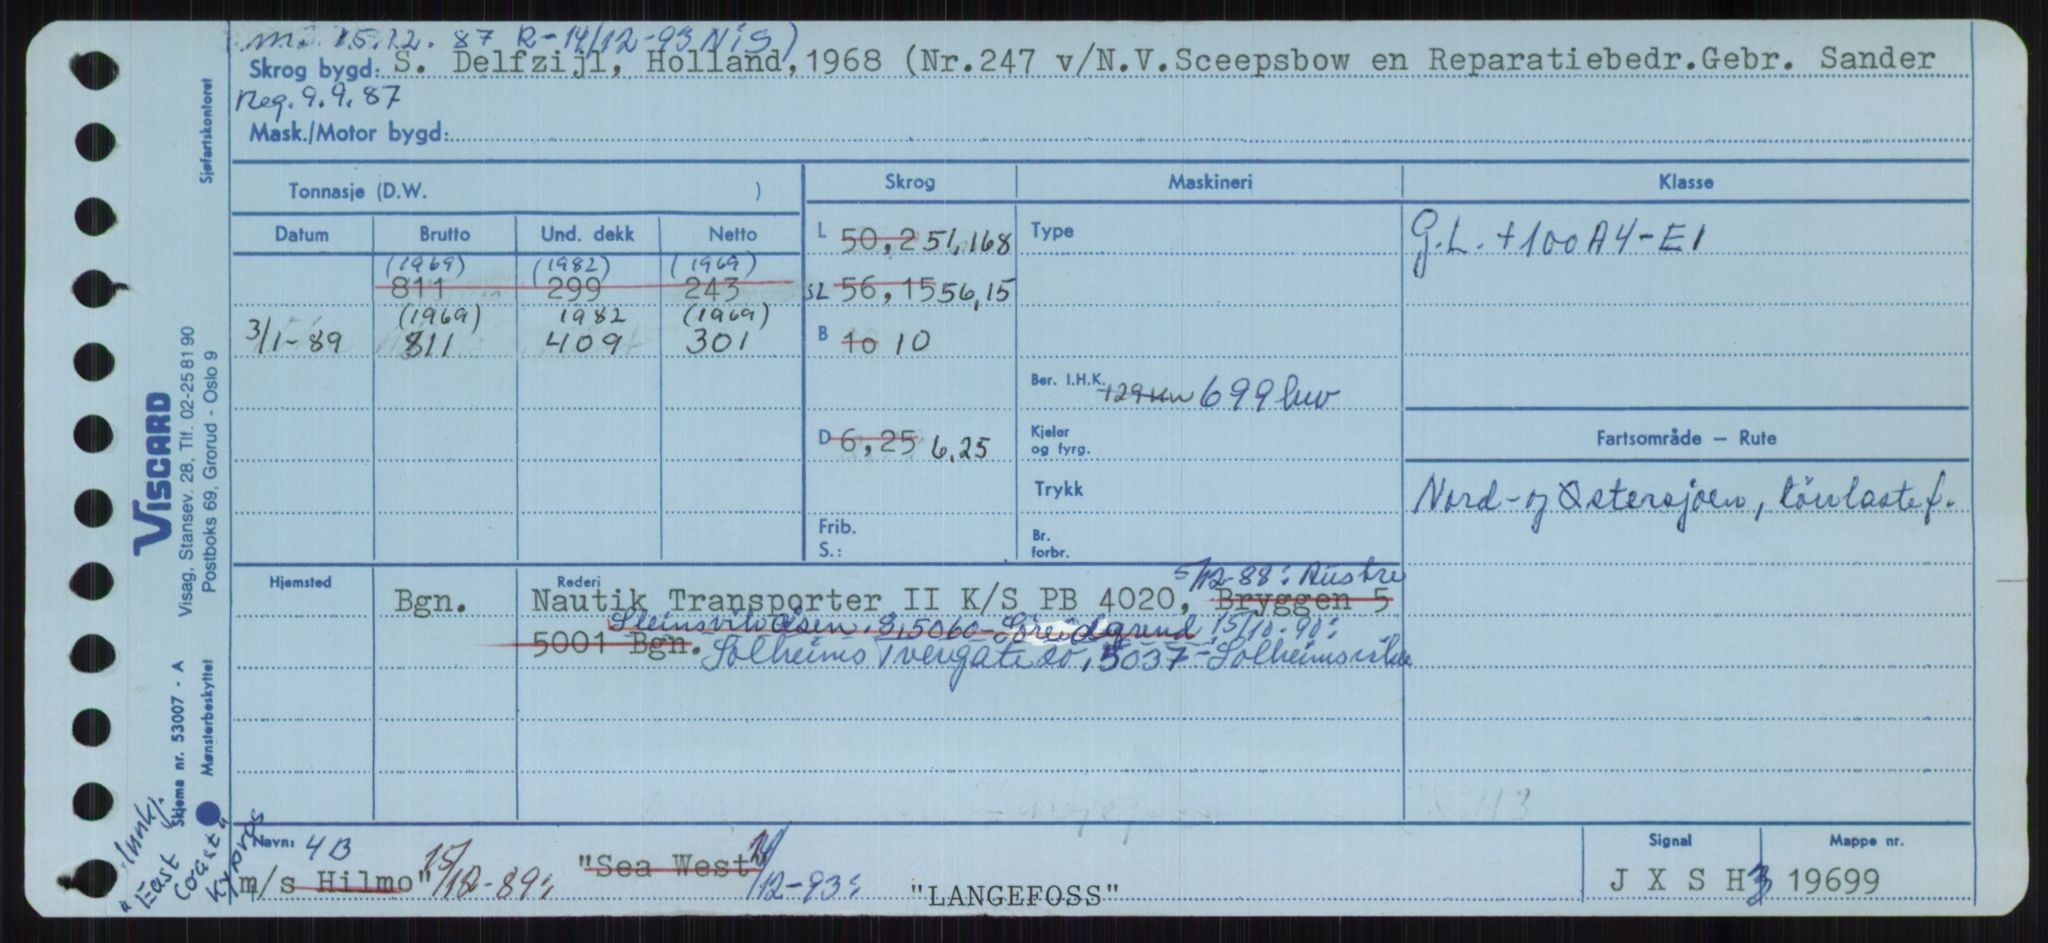 m. 15.12.87 R-14/12-93 NIS)
Skrog bygd: S. Delfzijl, Holland, 1968 (Nr.247 v/N.V.Sceepsbow en Reparatiebedr.Gebr. Sander
Reg. 9.9.87
Mask./Motor bygd:
Sjøfartskontoret
Tonnasje (D.W. )
Skrog
Maskineri
Klasse
Datum Brutto Und. dekk Netto
(1969) (1982) (1969)
811 299 243
(1969) 1982 (1969)
3/1-89 811 409 301
L 50,2 51,168
SL 56,15 56,15
B 10 10
D 6,25 6,25
Frib.
S.:
Type
Ber. I.H.K. 129 Kw 699 kw
Kjeler
og fyrg.
Trykk
Br.
forbr.
G.L. +100A4-E1
Fartsområde – Rute
Nord- og Østersjøen, tørrlastef.
Hjemsted
Rederi
5/12-88: Austre
Bgn. Nautik Transporter II K/S PB 4020, Bryggen 5
5060 15/10-90:
5001 Bgn. Solheims Tvergate 5037-Solheimsviken
Navn: 4B
m/s Hilmo" 15/12-89: "Sea West" 14/12-93: "LANGEFOSS"
Signal
J X S H 3
Mappe nr.
19699
VISCARD
Visag, Stansev. 28, Tlf. 02-25 81 90
Postboks 69, Grorud - Oslo 9
Skjema nr. 53007 - A
Mønsterbeskyttet
"East
Coast"
Kypros